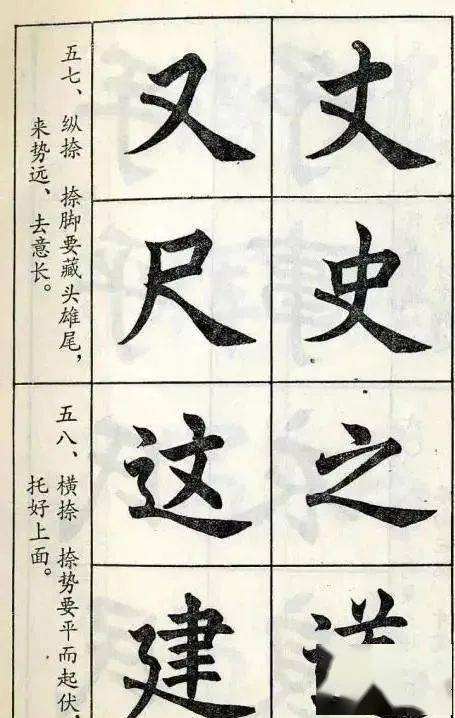 五七、纵捺 捺脚要藏头雄尾，
来势远、去意长。
又丈
尺史
五八、横捺 捺势要平而起伏，
托好上面。
这之
建